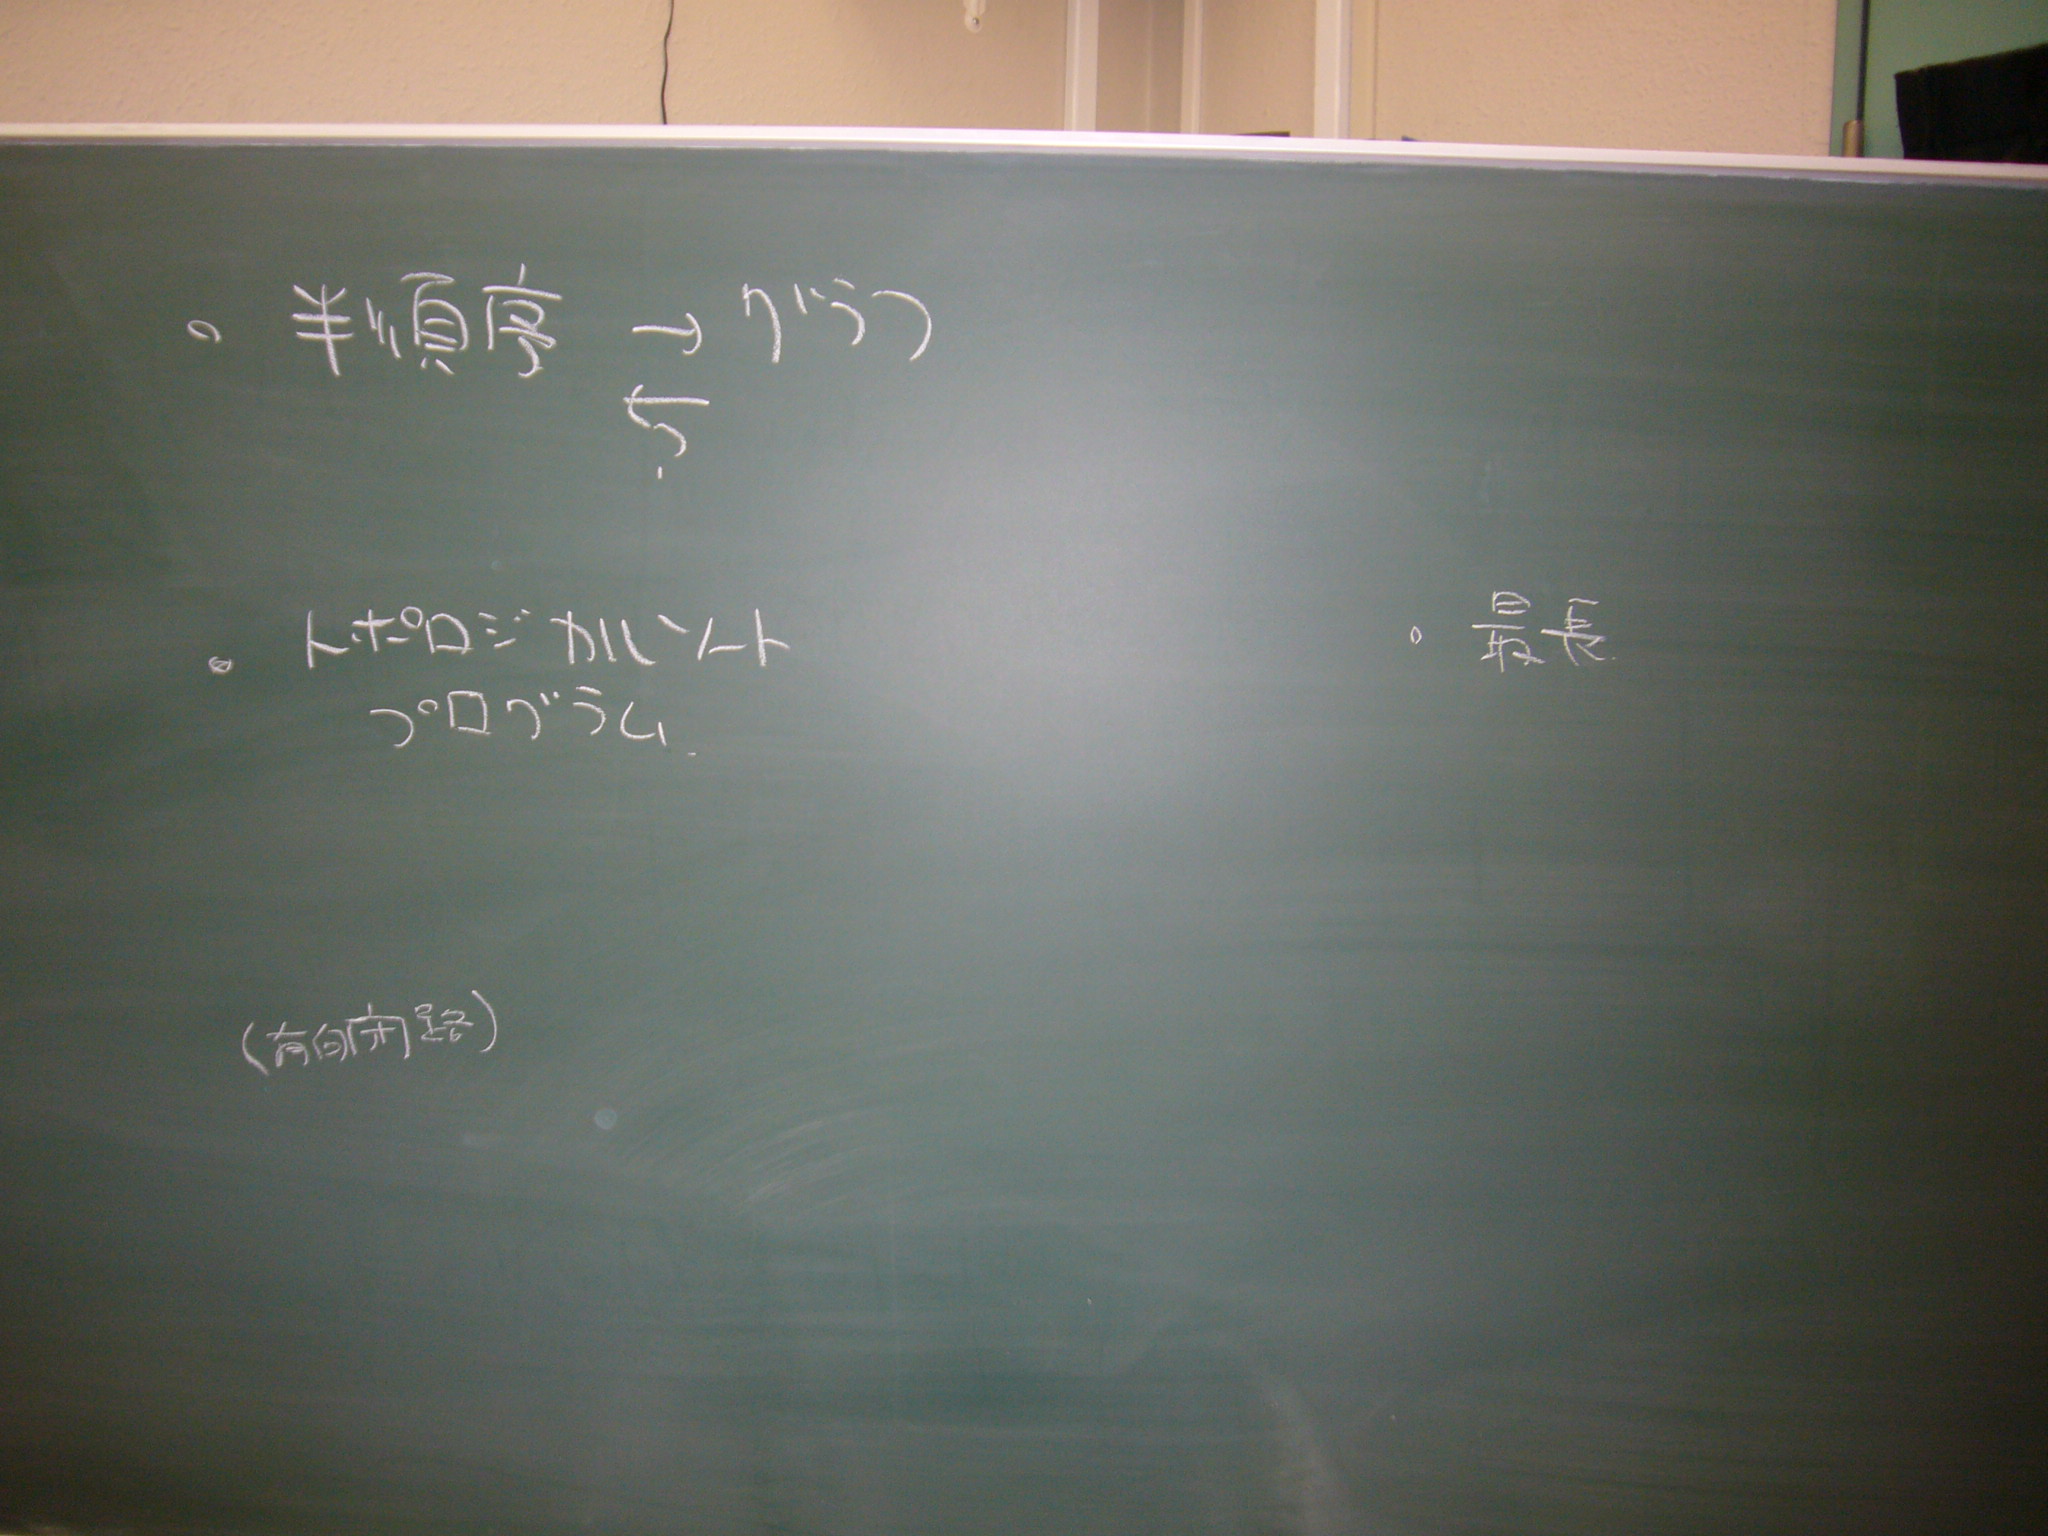 。半順序 → グラフ
←
?
。トポロジカルソート
プログラム.
。最長.
(有向閉路)